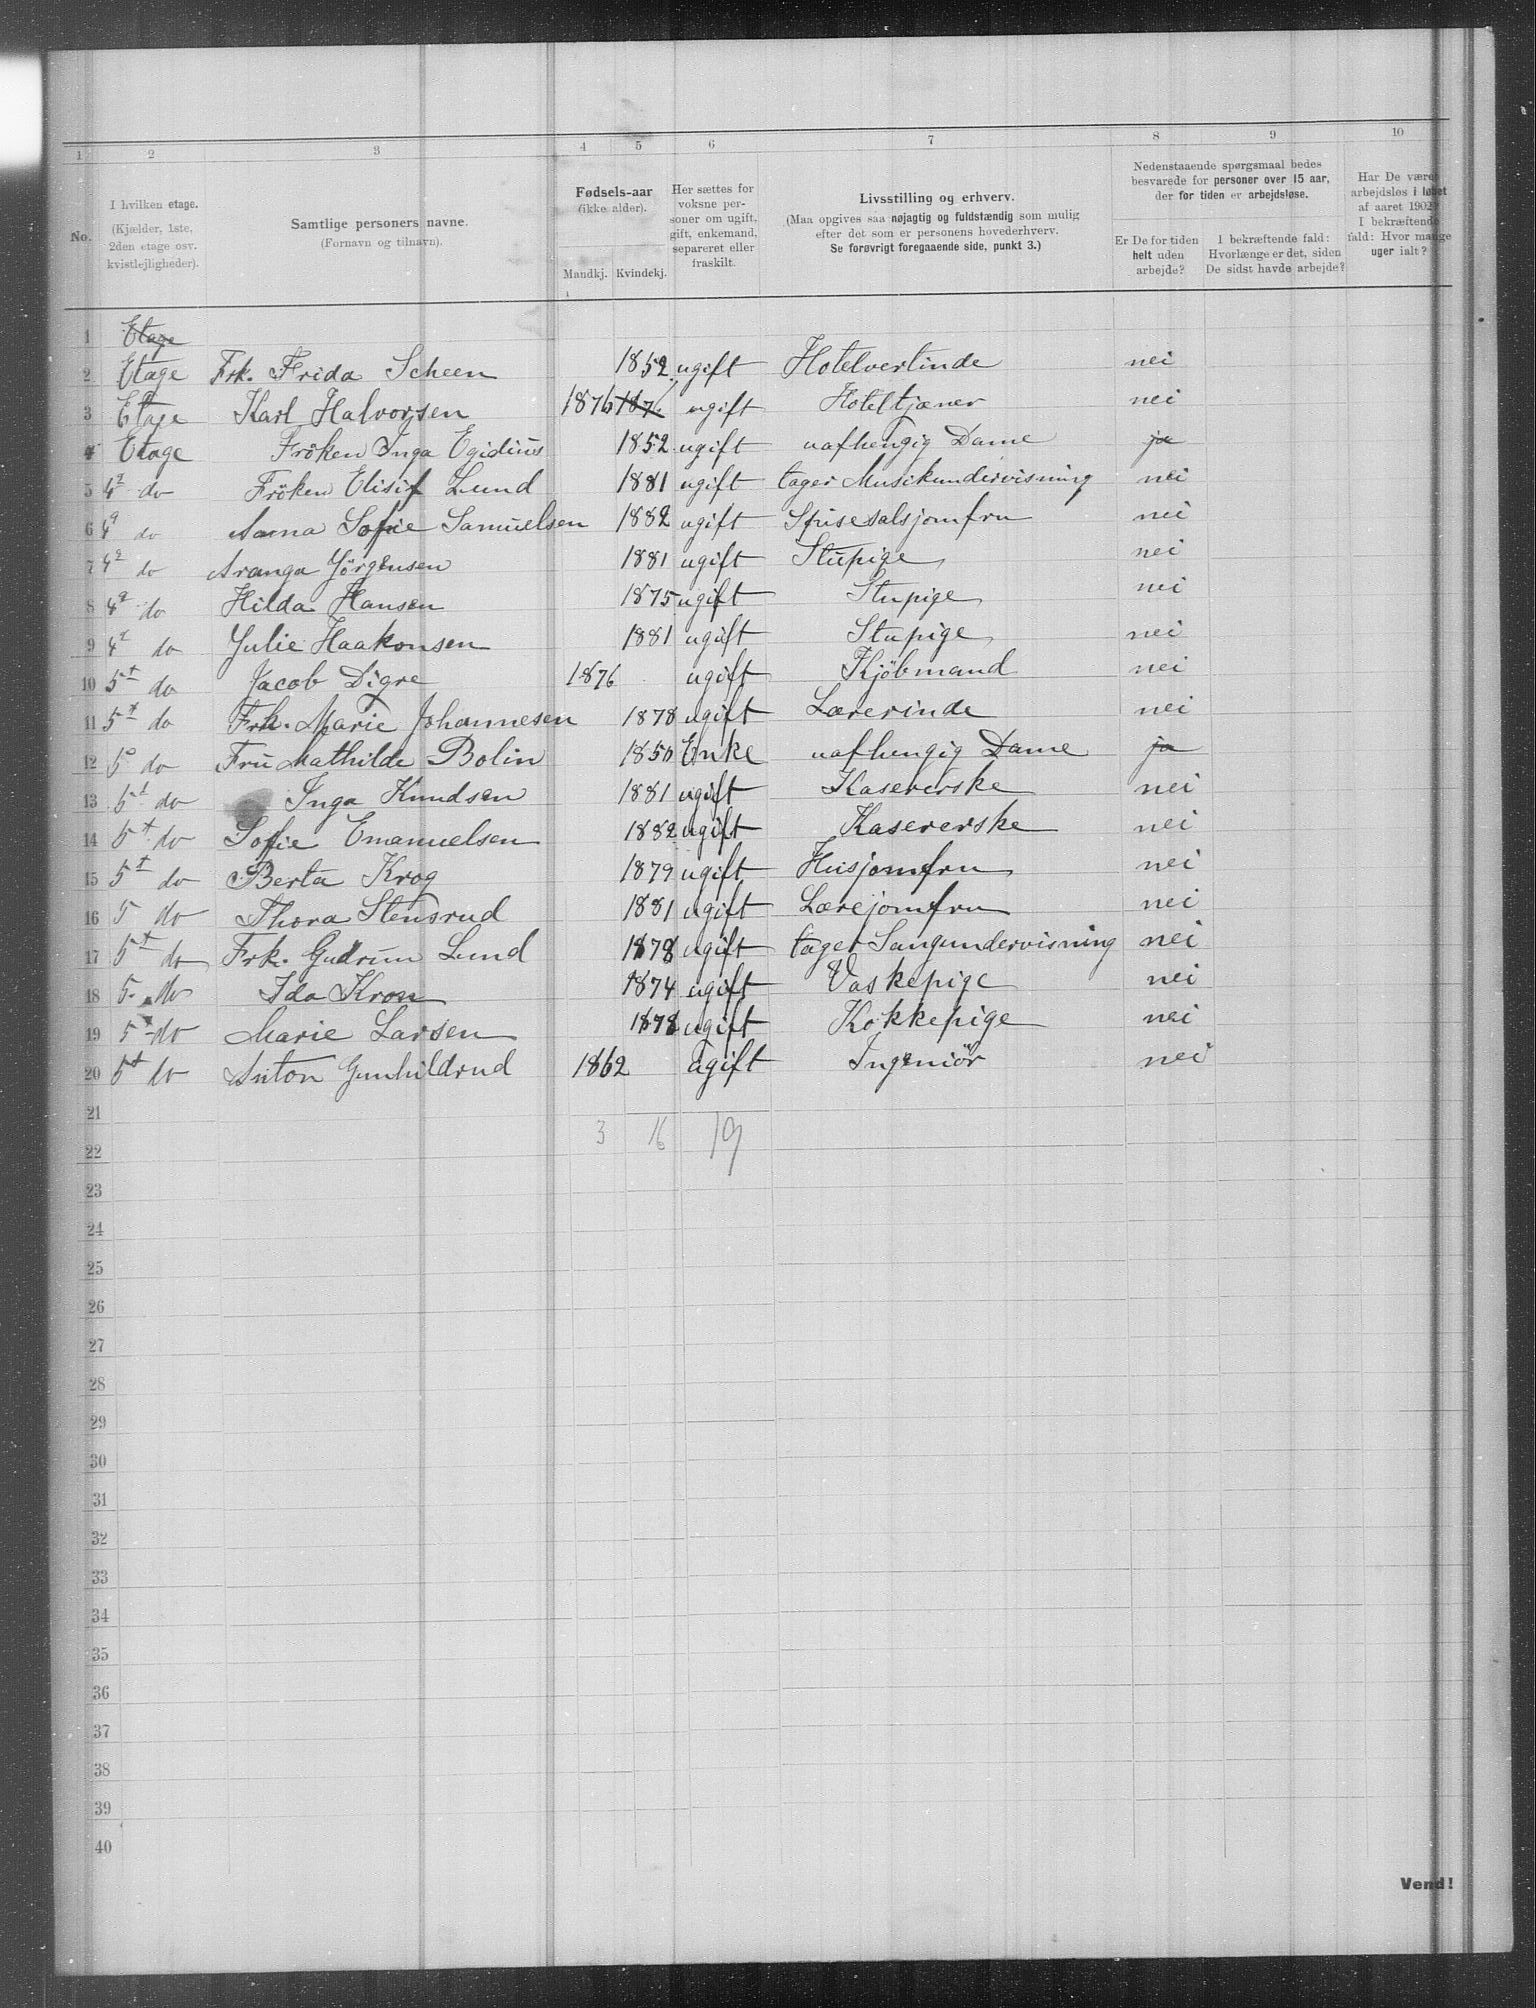 1 2 3 4 5 6 7 8 9 10
No. I hvilken etage. (Kjælder, 1ste, 2den etage osv. kvistlejligheder). Samtlige personers navne. (Fornavn og tilnavn). Fødsels-aar (ikke alder). Mandkj. Kvindekj. Her sættes for voksne personer om ugift, gift, enkemand, separeret eller fraskilt. Livsstilling og erhverv. (Maa opgives saa nøjagtig og fuldstændig som mulig efter det som er personens hovederhverv. Se forøvrigt foregaaende side, punkt 3.) Nedenstaaende spørgsmaal bedes besvarede for personer over 15 aar, der for tiden er arbejdsløse. Er De for tiden helt uden arbejde? I bekræftende fald: Hvorlænge er det, siden De sidst havde arbejde? Har De været arbejdsløs i løbet af aaret 1902? I bekræftende fald: Hvor mange uger ialt?
1 Etage
2 Etage Frk. Frida Scheen 1852 ugift Hotelvertinde nei
3 Etage Karl Halvorsen 1876 187 ugift Hoteltjæner nei
4 Etage Fröken Inga Egidius 1852 ugift uafhengig Dame ja
5 4 do Fröken Elisif Lund 1881 ugift tager Musikundervisning nei
6 4 do Anna Sofie Samuelsen 1882 ugift Spisesalsjomfru nei
7 4 do Aranga Jörgensen 1881 ugift Stupige nei
8 4 do Hilda Hansen 1875 ugift Stupige nei
9 4 do Julie Haakonsen 1881 ugift Stupige nei
10 5 do Jacob Digre 1876 ugift Kjöbmand nei
11 5 do Frk. Marie Johannesen 1878 ugift Lærerinde nei
12 5 do Fru Mathilde Bolin 1850 Enke uafhengig Dame ja
13 5 do Inga Knudsen 1881 ugift Kasererske nei
14 5 do Sofie Emanuelsen 1882 ugift Kasererske nei
15 5 do Berta Krog 1879 ugift Husjomfru nei
16 5 do Thora Stensrud 1881 ugift Lærejomfru nei
17 5 do Frk. Gudrun Lund 1878 ugift tager Sangundervisning nei
18 5 do Ida Kron 1874 ugift Vaskepige nei
19 5 do Marie Larsen 1878 ugift Kokkepige nei
20 5 do Anton Gunhildrud 1862 Ugift Ingeniör nei
21
22 3 16 19
23
24
25
26
27
28
29
30
31
32
33
34
35
36
37
38
39
40
Vend!